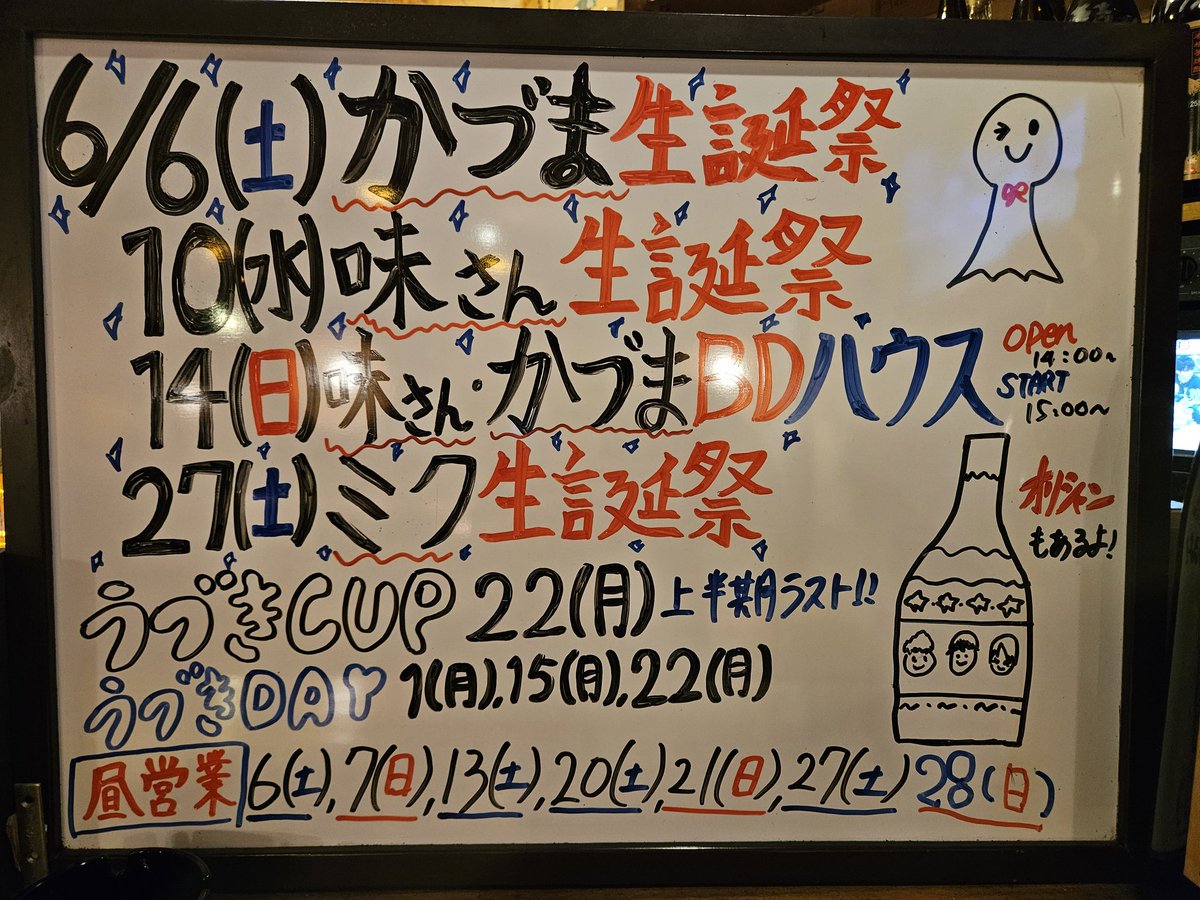 6/6(土)かづま生誕祭
10(水)味さん生誕祭
14(日)味さん・かづまBDハウス
OPen 14:00~
START 15:00~
27(土)ミク生誕祭
オリシャン
もあるよ!
うづきCUP 22(月)上半期ラスト!!
うづきDAY 1(月),15(月),22(月)
昼営業 6(土),7(日),13(土),20(土),21(日),27(土)28(日)